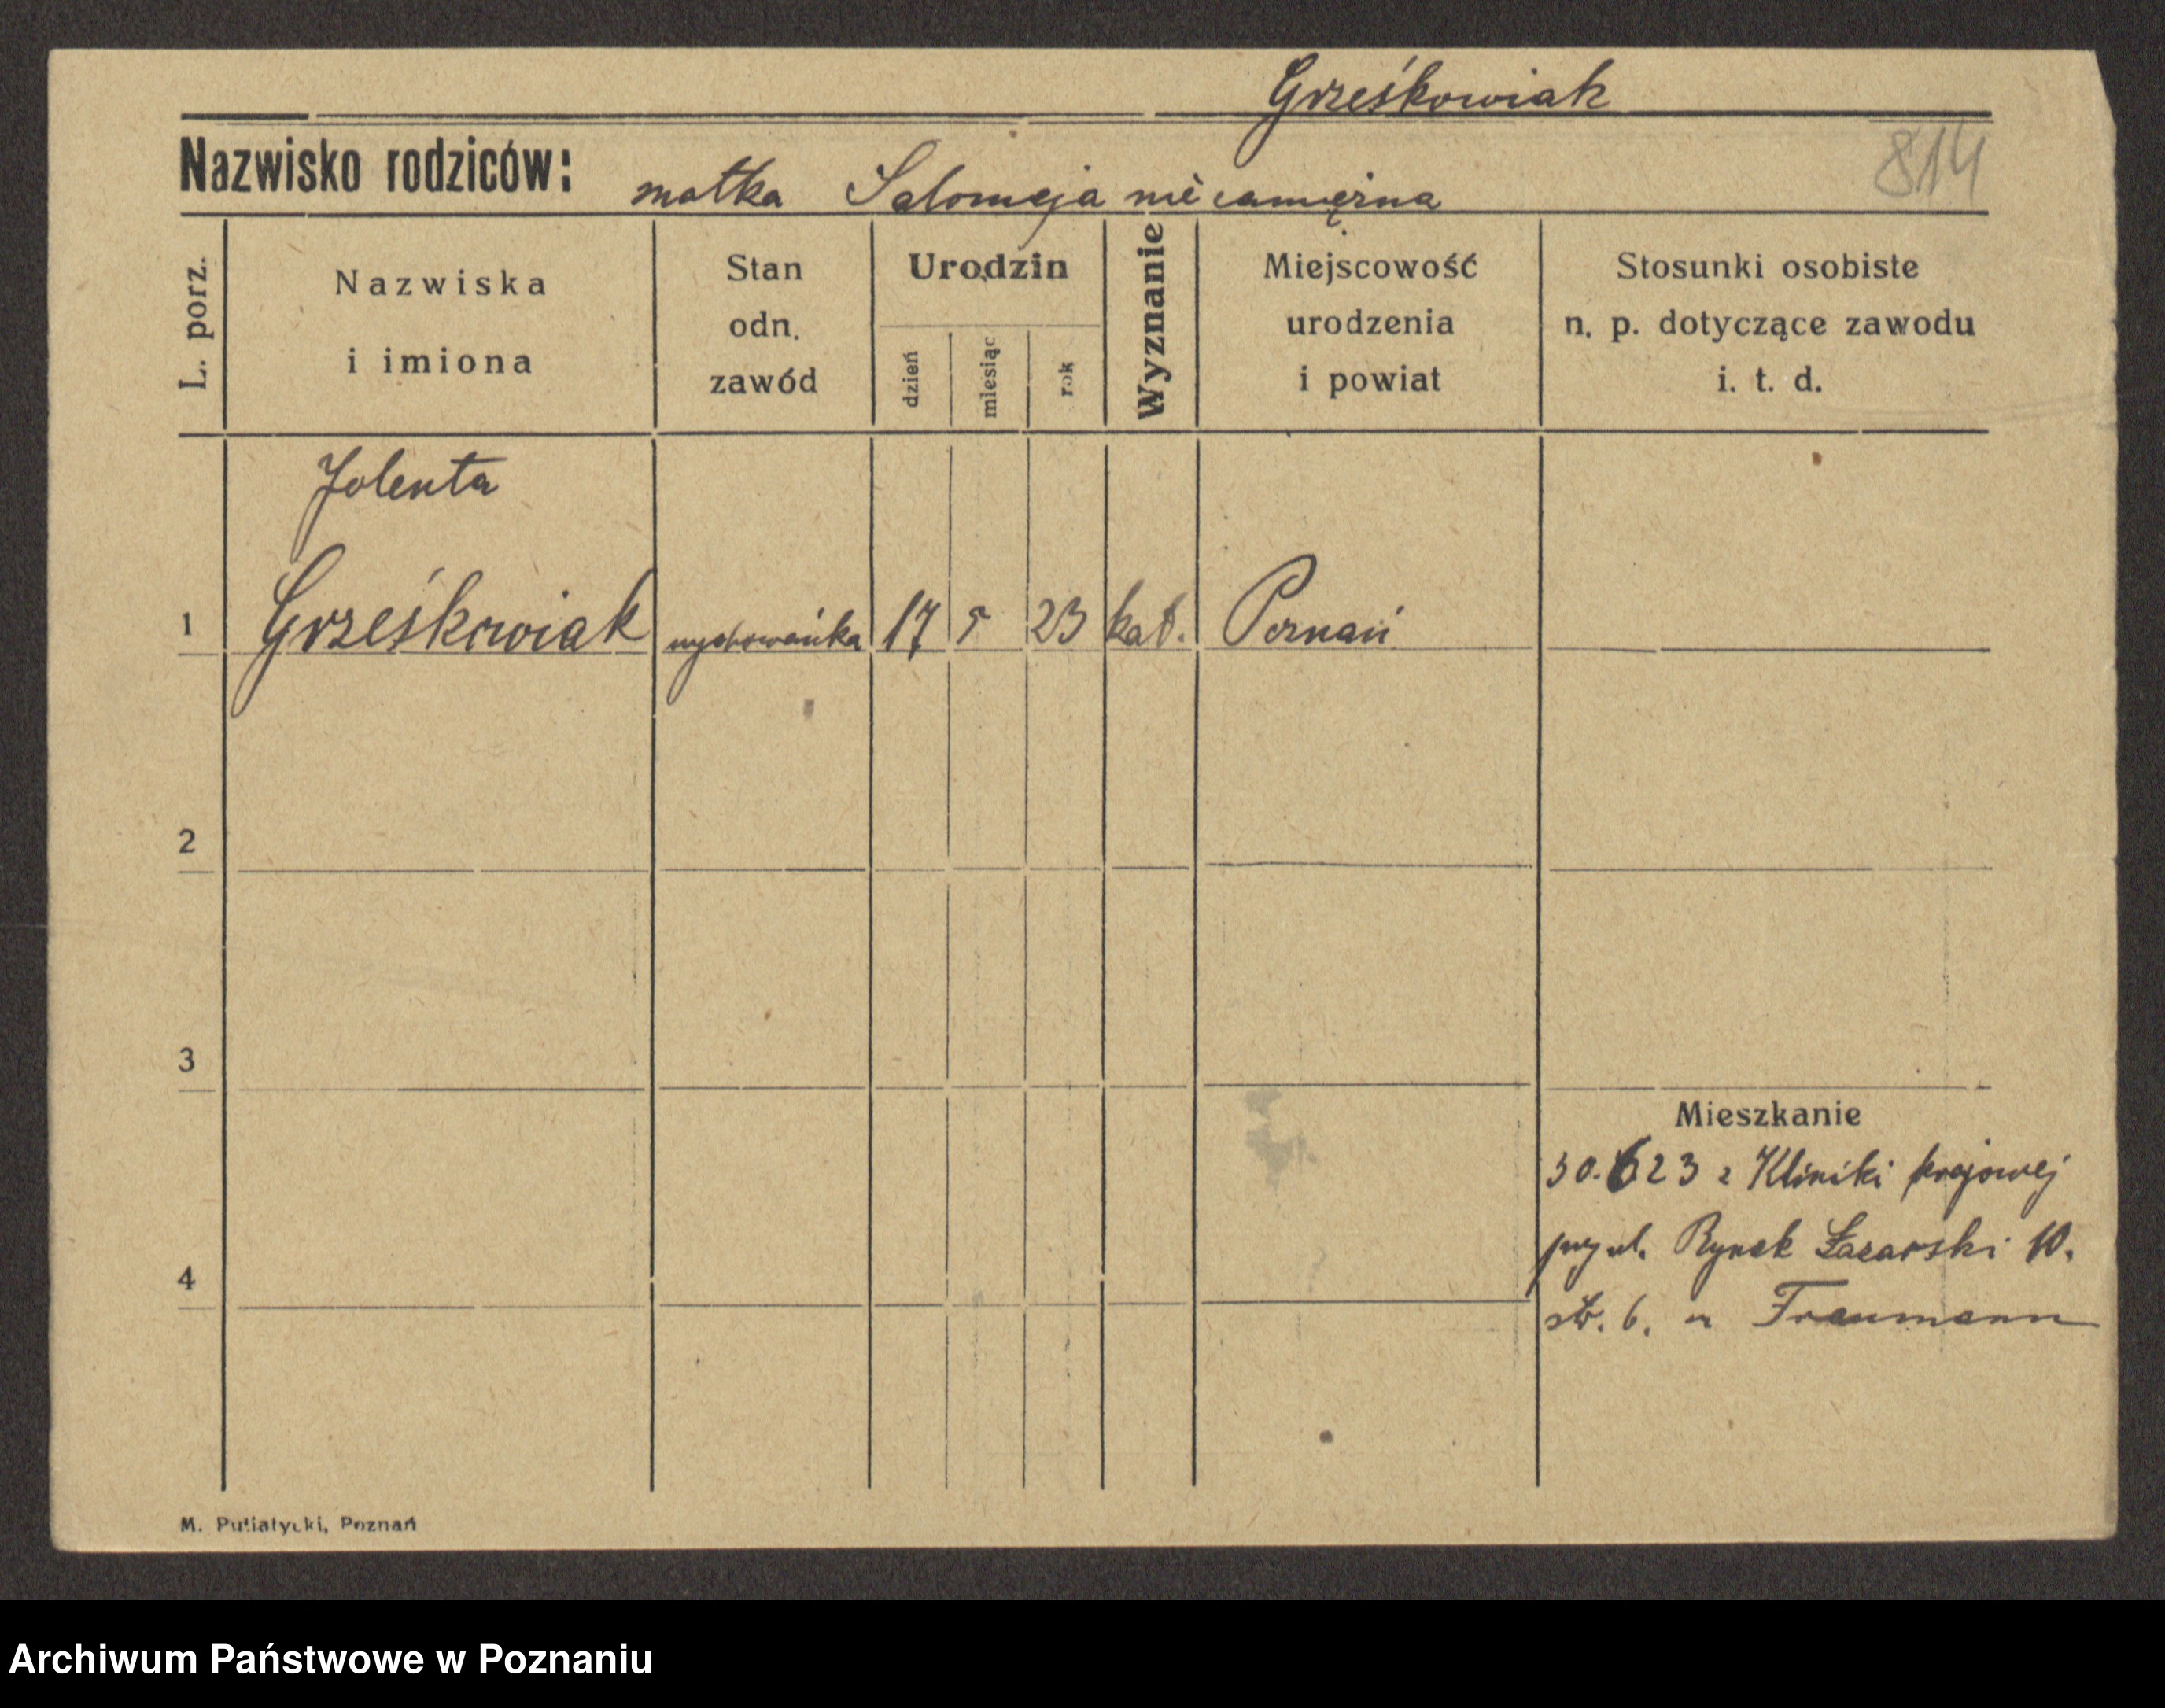 Grześkowiak
Nazwisko rodziców: matka Salomeja nie zamężna
814
L. porz.
Nazwiska
i imiona
Stan
odn.
zawód
Urodzin
dzień
miesiąc
rok
Wyznanie
Miejscowość
urodzenia
i powiat
Stosunki osobiste
n. p. dotyczące zawodu
i. t. d.
Jolenta
1 Grześkowiak wychowanka 17 5 23 kat. Poznań
2
3
Mieszkanie
30.6 23 z Kliniki krajowej
przy ul. Rynek Łazarski 10.
4
str. 6. u Traumann
M. Putiatycki, Poznań
Archiwum Państwowe w Poznaniu